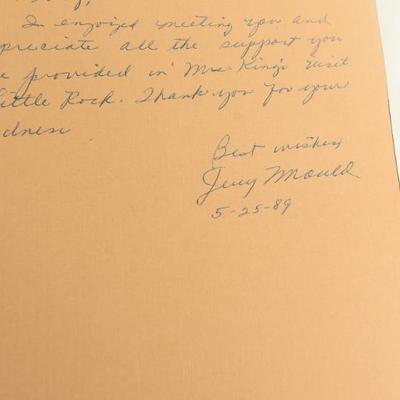 In enjoyed meeting you and
preciate all the support you
e provided in Mrs. King's visit
ittle Rock. Thank you for your
dness
Best wishes
Jerry Mould
5-25-89